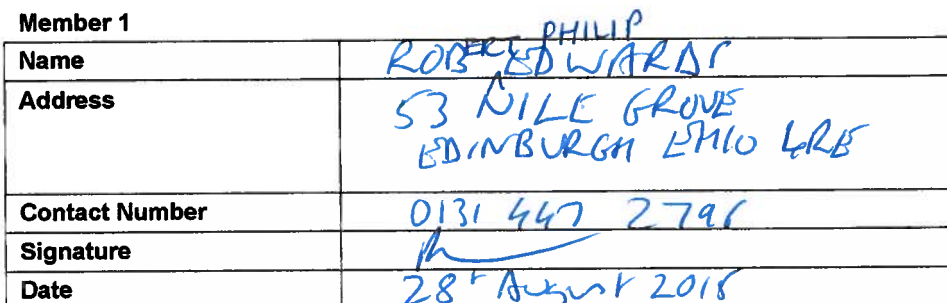 Member 1
Name ROBERT PHILIP EDWARDS
Address 53 NILE GROVE
EDINBURGH EH10 4RE
Contact Number 0131 447 2796
Signature
Date 28th August 2018